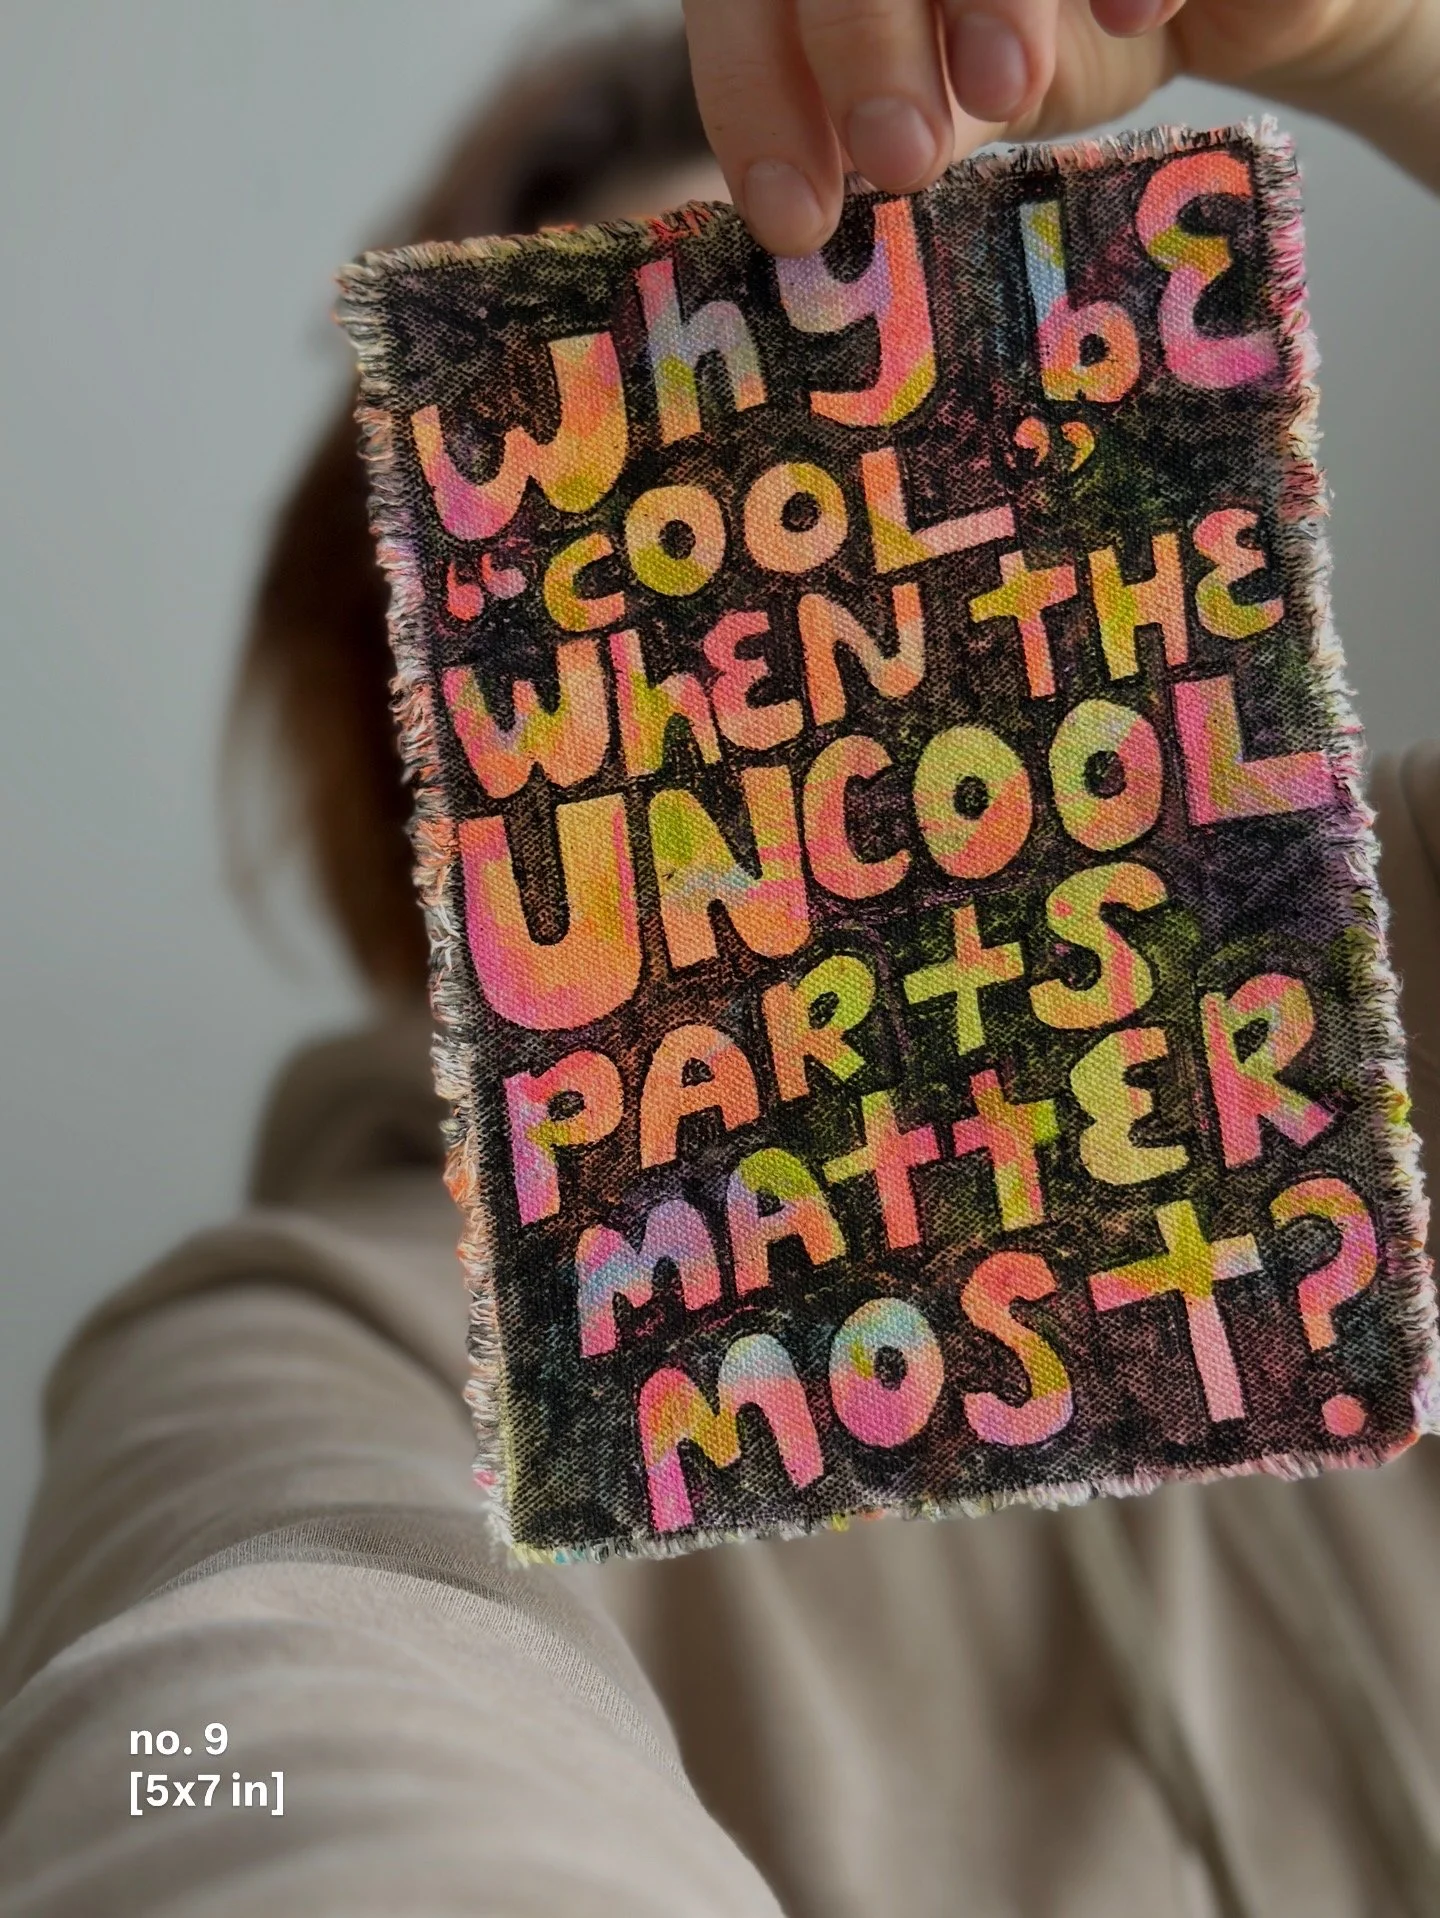 Why bE
“COOL”
WhEN THE
UNCOOL
PARTS
MATTER
MOST?
no. 9
[5x7 in]